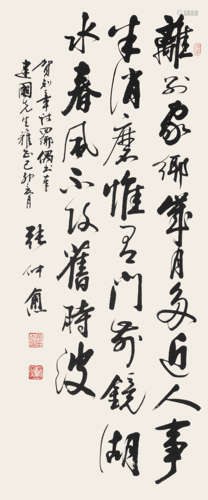 離别家鄉歲月多近人事
半消磨惟有門前鏡湖
水春風不改舊時波
賀知章詩回鄉偶書奉
建國先生雅正己卯五月
張仲愈